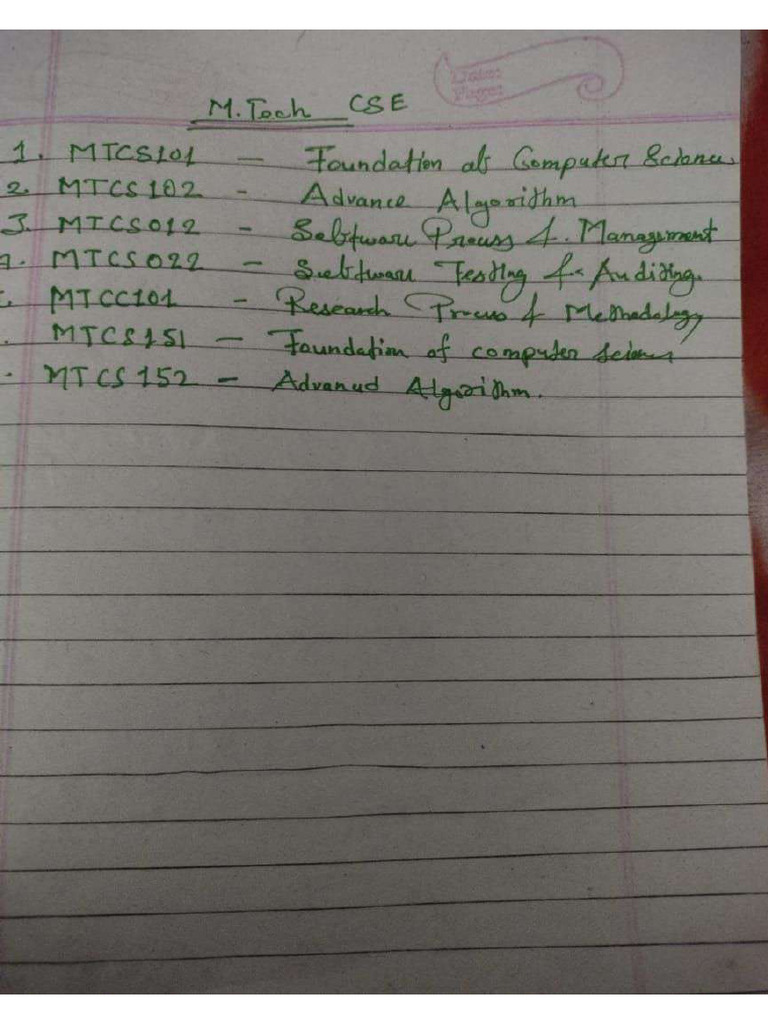 M.Tech CSE
1. MTCS101 - Foundation of Computer Science
2. MTCS102 - Advance Algorithm
3. MTCS012 - Software Process & Management
MTCS022 - Software Testing & Auditing.
MTCC101 - Research Process & Methodology
. MTCS151 - Foundation of computer science
. MTCS152 - Advanced Algorithm.